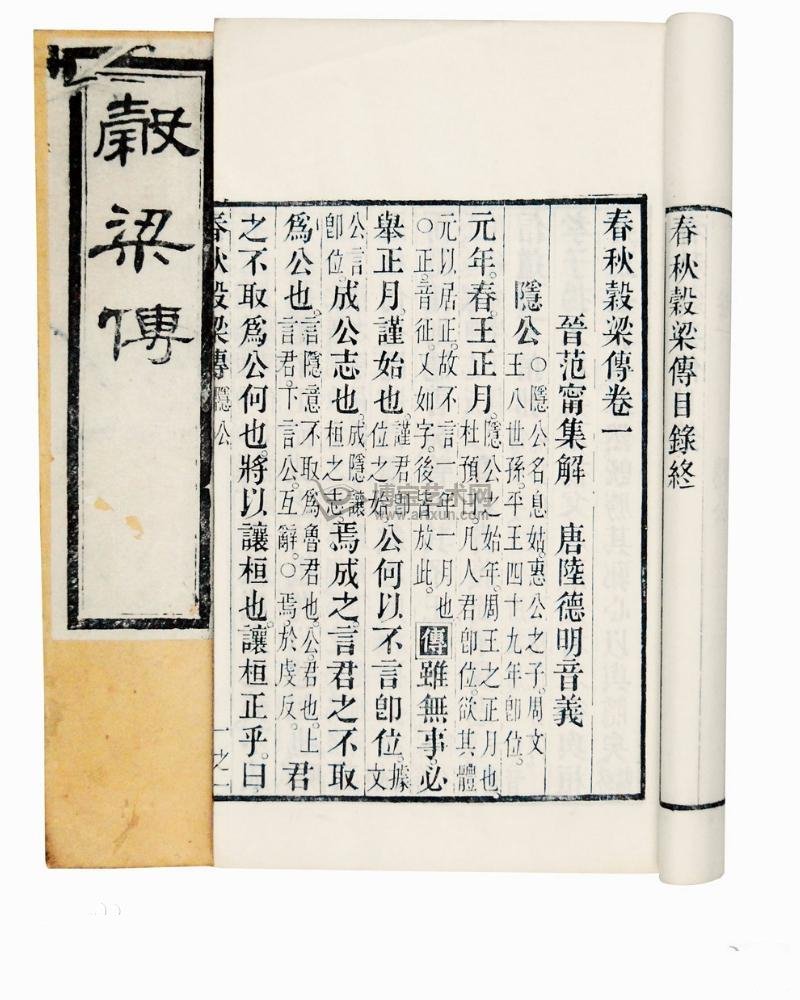 春秋穀梁傳目錄終
春秋穀梁傳卷一
晉范甯集解　唐陸德明音義
隱公○隱公名息姑。惠公之子。周文王八世孫。平王四十九年卽位。
元年。春。王正月。隱公之始年。周王之正月也杜預曰。凡人君卽位。欲其體
元以居正。故不言一年一月也○正。音征。又如字。後皆放此。傳雖無事。必
舉正月。謹始也。謹君卽位之始公何以不言卽位。據文
公言卽位成公志也。成隱讓桓之志。焉成之。言君之不取
爲公也。言隱意不取爲魯君也。公。君也。上言君。下言公。互辭。○焉。於虔反。君
之不取爲公何也。將以讓桓也。讓桓正乎。曰
春秋穀梁傳 隱公 一之一
穀梁傳
博宝艺术网
www.artxun.com